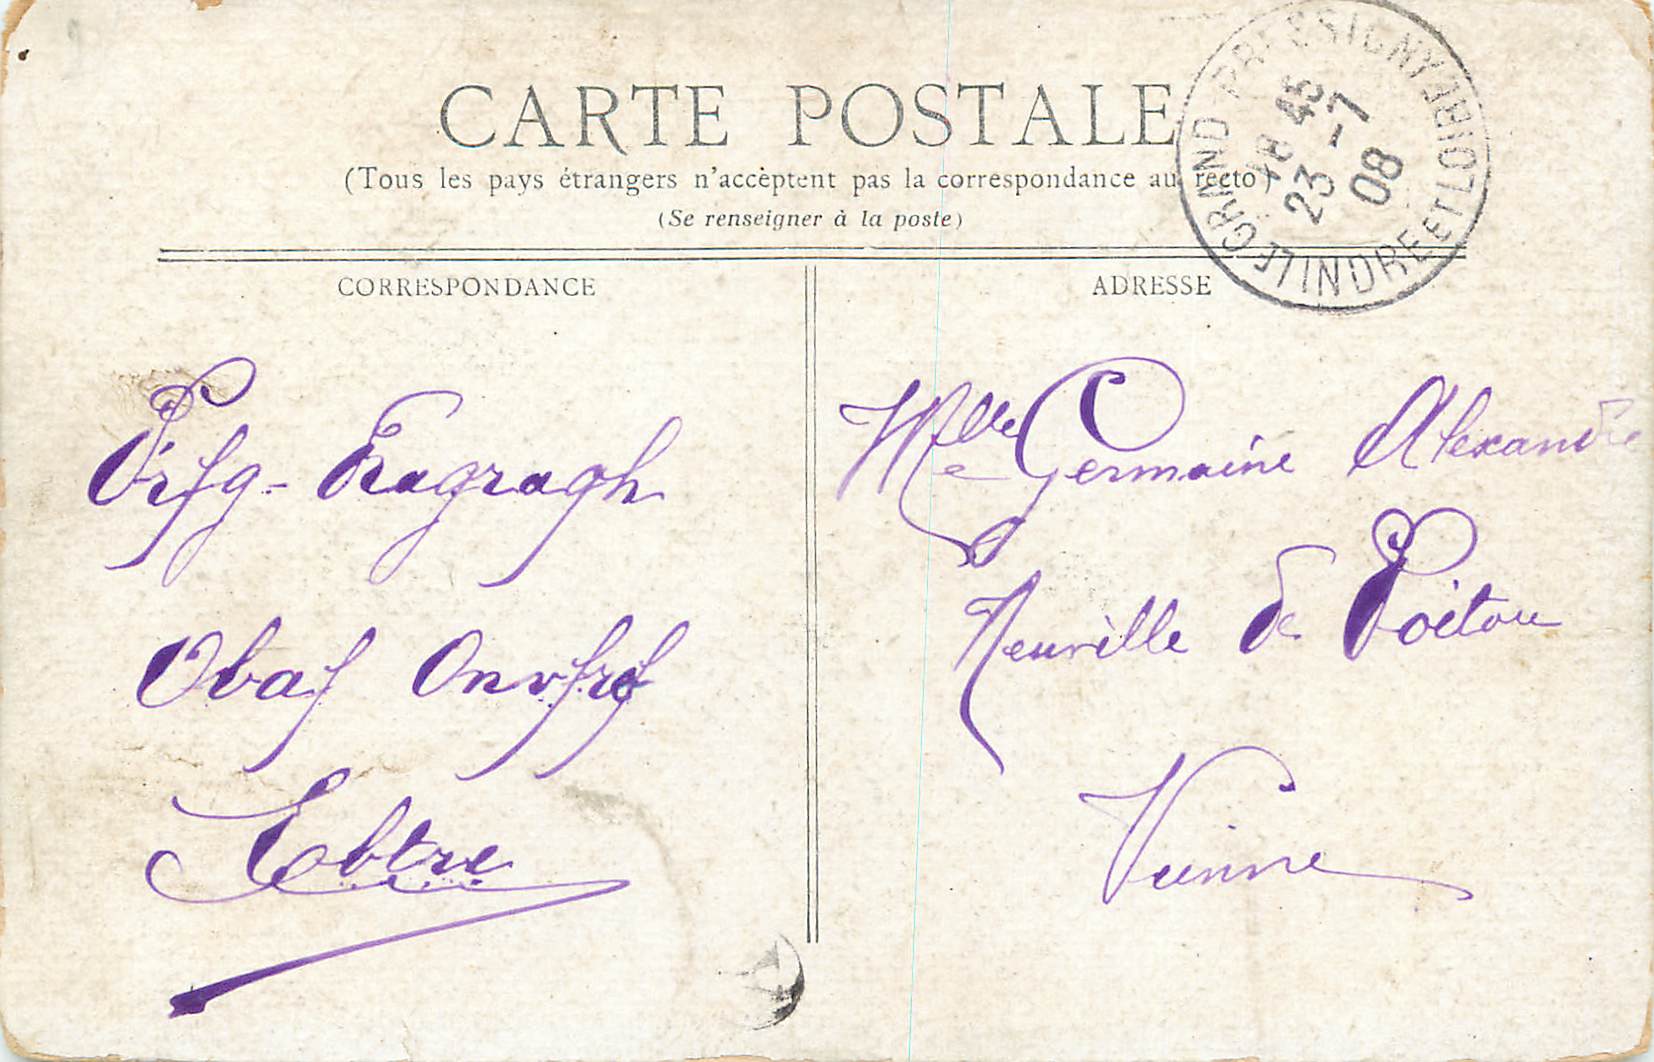 CARTE POSTALE
(Tous les pays étrangers n'acceptent pas la correspondance au recto)
(Se renseigner à la poste)
LE GRAND-PRESSIGNY INDRE ET LOIRE
18 45
23 -7
08
CORRESPONDANCE
P'rfg- Ragraqh
Obaf Onvfref
Ebtre
ADRESSE
Melle Germaine Alexandre
Neuville de Poitou
Vienne